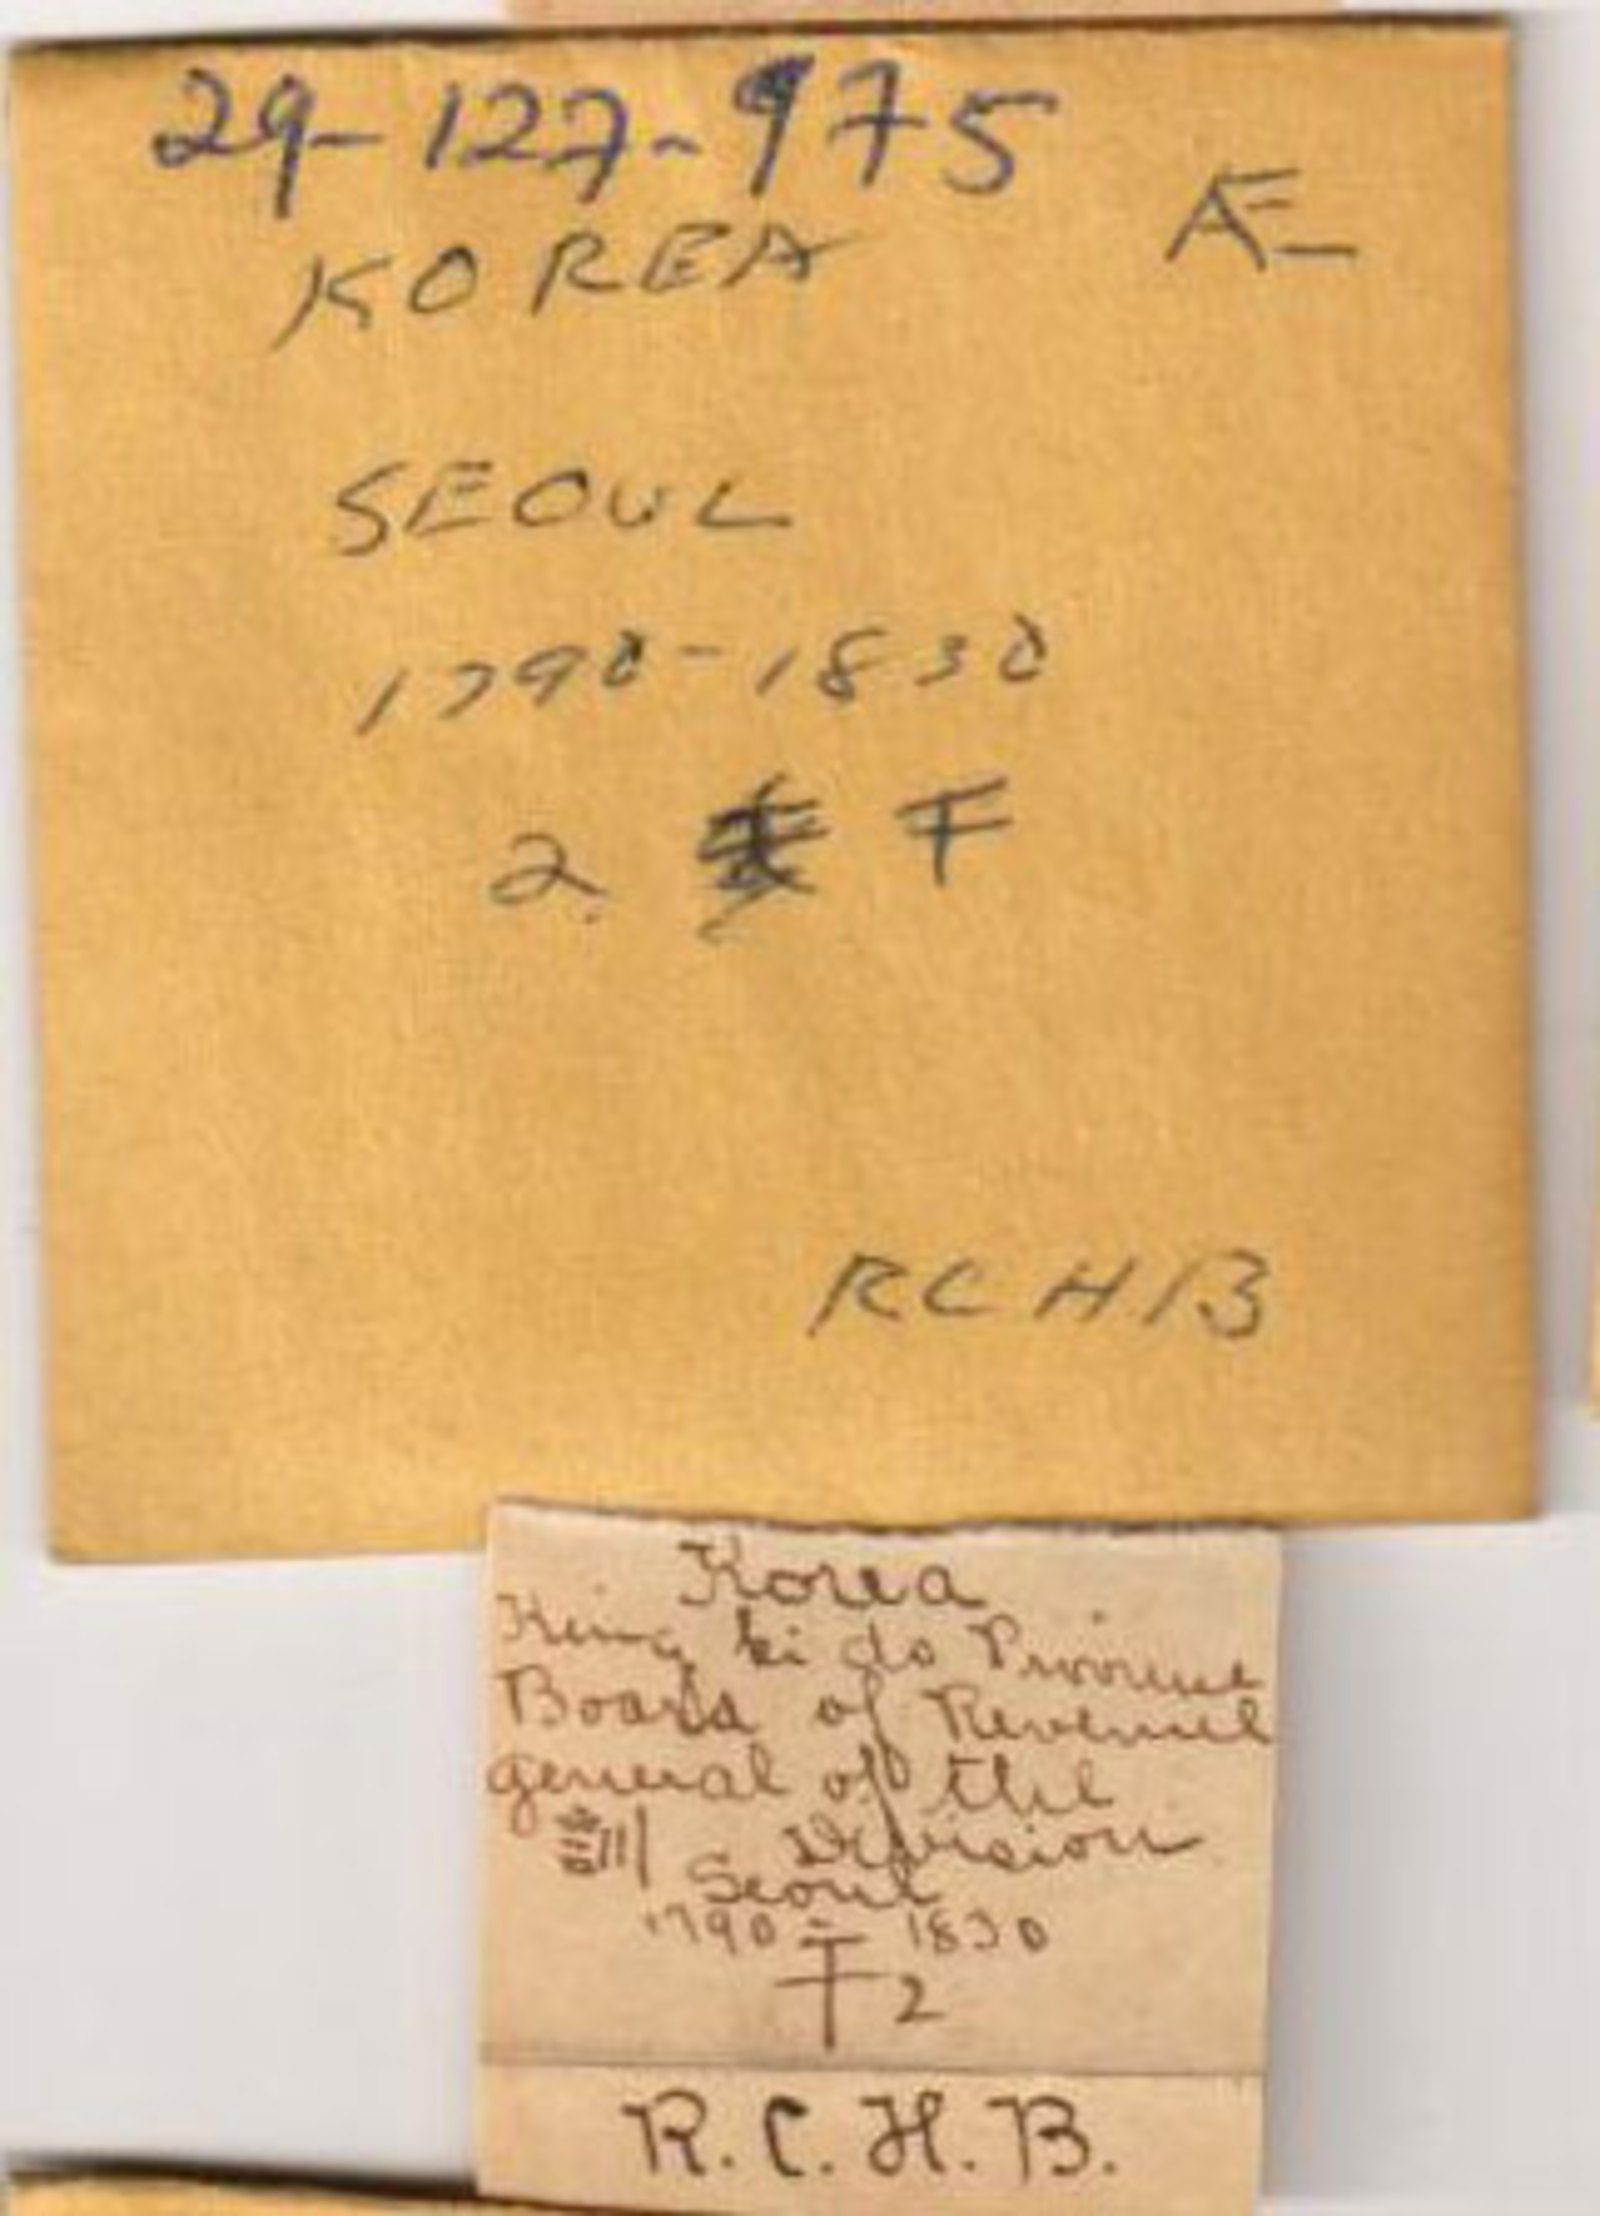 29-127-975
Æ
KOREA
SEOUL
1790-1830
2 F
RCHB
Korea
King ki do Province
Board of Revenue
general of the
Division
Seoul
1790 - 1830
T 2
R.C.H.B.